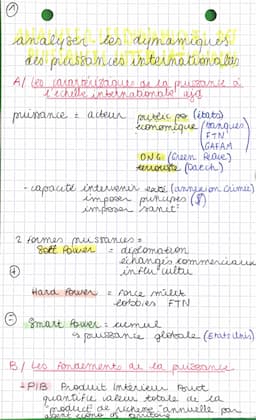 ①
analyser les dynamiques
des puissances internationales
A/ les caractéristiques de la puissance à
l'échelle internationale ajd
puissance = acteur public pø (états)
économique (banques
FTN
GAFAM
ONG (Green Peace)
terroriste (Daech)
- capacité intervenir ext (annexion Crimée)
imposer principes ($)
imposer sanct°
2 formes puissances =
Soft Power = diplomation
échanges commerciaux
influ cultu
+
Hard Power = force milit
lobbies FTN
= Smart Power = cumul
↳ puissance globale (États Unis)
B/ Les Fondements de la puissance
- PIB Produit Intérieur Brut
quantifie valeur totale de la
"product° de richesse" annuelle par
agent écono d'1 territoire